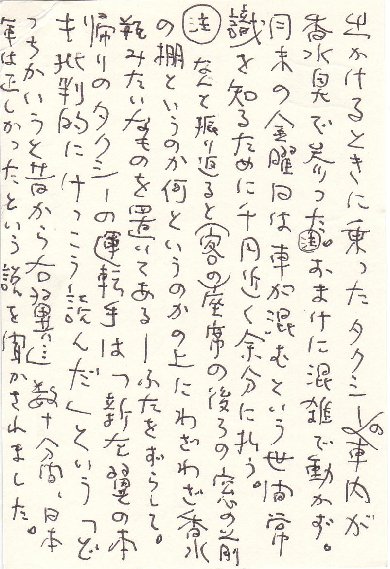 出かけるときに乗ったタクシーの車内が
香水臭で参った。㊟おまけに混雑で動かず。
月末の金曜日は車が混むという世間常
識を知るために千円近く余分に払う。
㊟なんと振り返ると(客の)座席の後ろの窓の前
の棚というのか何というのかの上にわざわざ香水
瓶みたいなものを置いてある—ふたをずらして。
帰りのタクシーの運転手は「新左翼の本
も批判的にけっこう読んだ」という「ど
っちかいうと昔から右翼」。数十分間、日本
軍は正しかったという説を聞かされました。